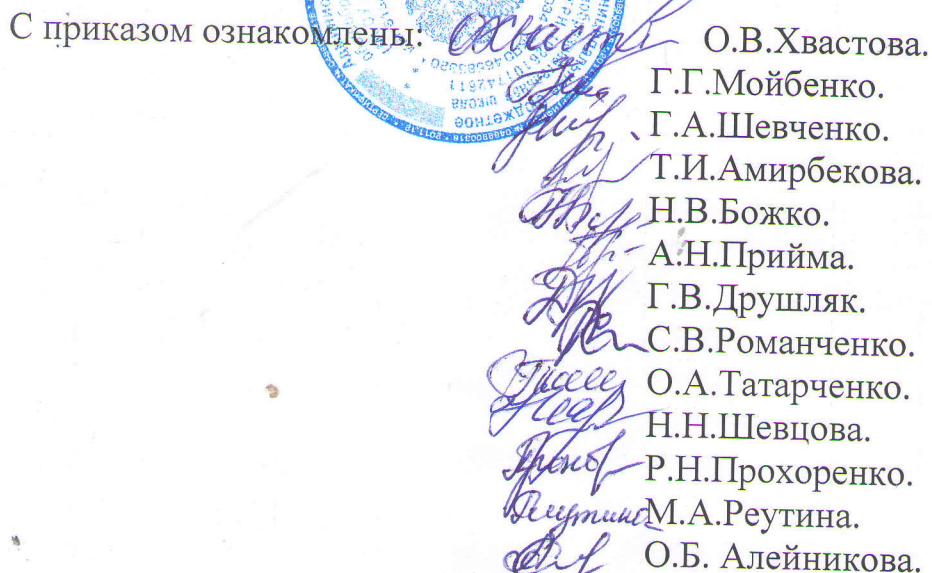 С приказом ознакомлены: О.В.Хвастова.
Г.Г.Мойбенко.
Г.А.Шевченко.
Т.И.Амирбекова.
Н.В.Божко.
А.Н.Прийма.
Г.В.Друшляк.
С.В.Романченко.
О.А.Татарченко.
Н.Н.Шевцова.
Р.Н.Прохоренко.
М.А.Реутина.
О.Б. Алейникова.